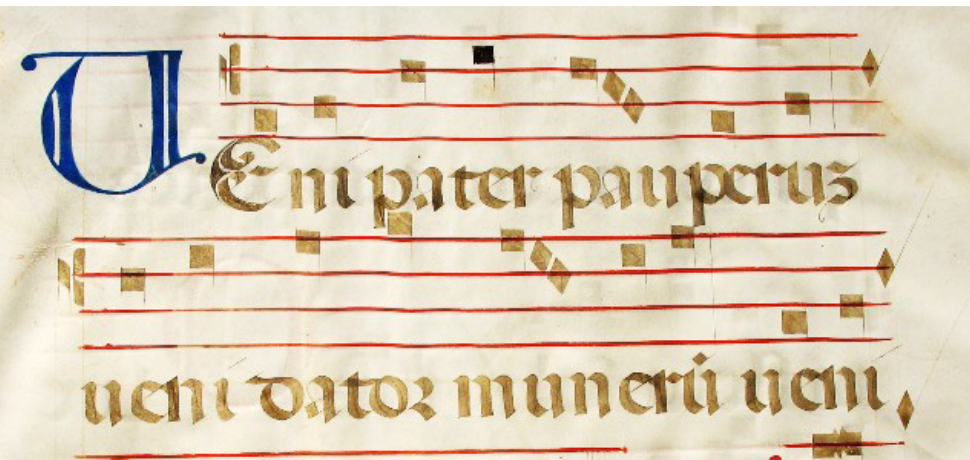 VEni pater pauperuz
ueni dator munerū ueni